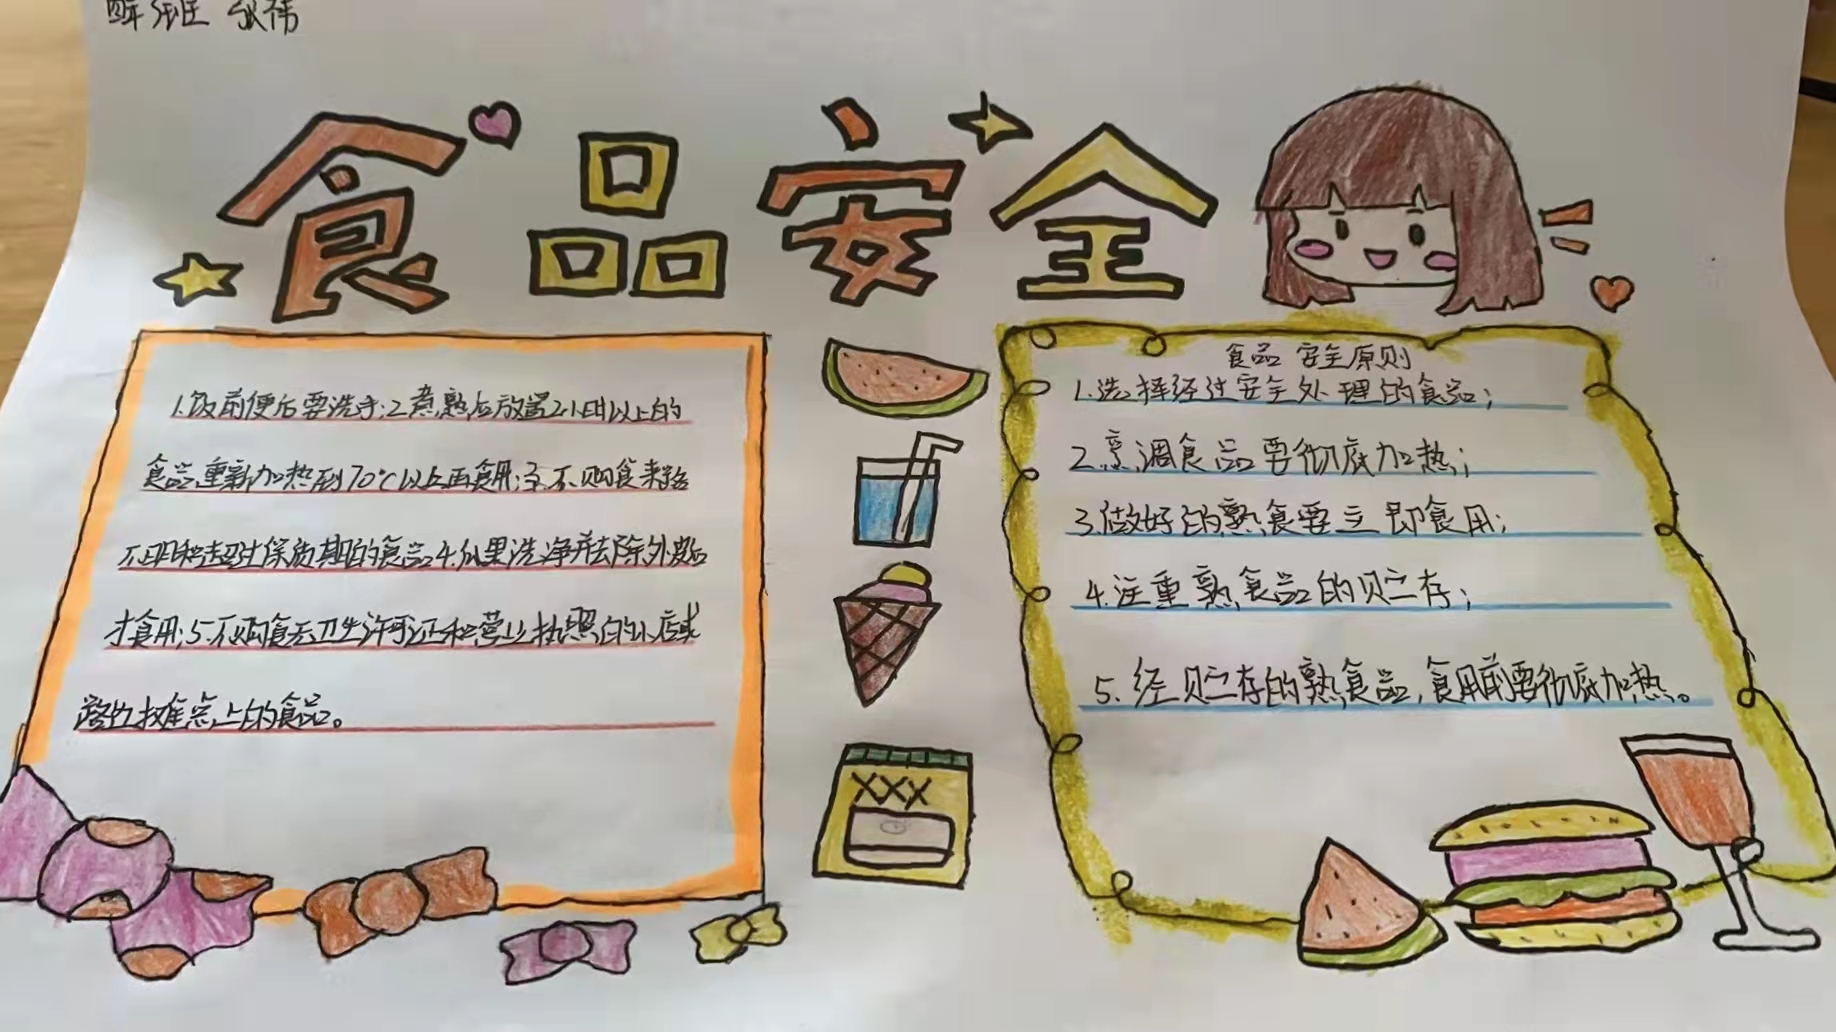 张伟
食品安全
1.饭前便后要洗手;2.煮熟后放置2小时以上的
食品重新加热到70℃以上再食用;3.不购食来路
不明和超过保质期的食品。4.瓜果洗净并去除外皮后
才食用;5.不购食无卫生许可证和营业执照的小店或
路边摊点上的食品。
XXX
食品安全原则
1.选择经过安全处理的食品;
2.烹调食品要彻底加热;
3.做好的熟食要立即食用;
4.注重熟食品的贮存;
5.经贮存的熟食品,食用前要彻底加热。